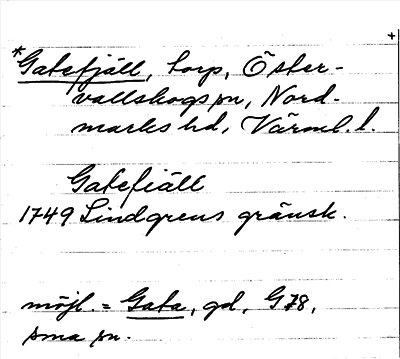 +
*Gatefjäll, torp, Öster-
vallskogs pn, Nord-
marks hd, Värml. l.
Gatefiäll
1749 Lindgrens gränsk.
möjl. = Gata, gd, G78,
sma pn.